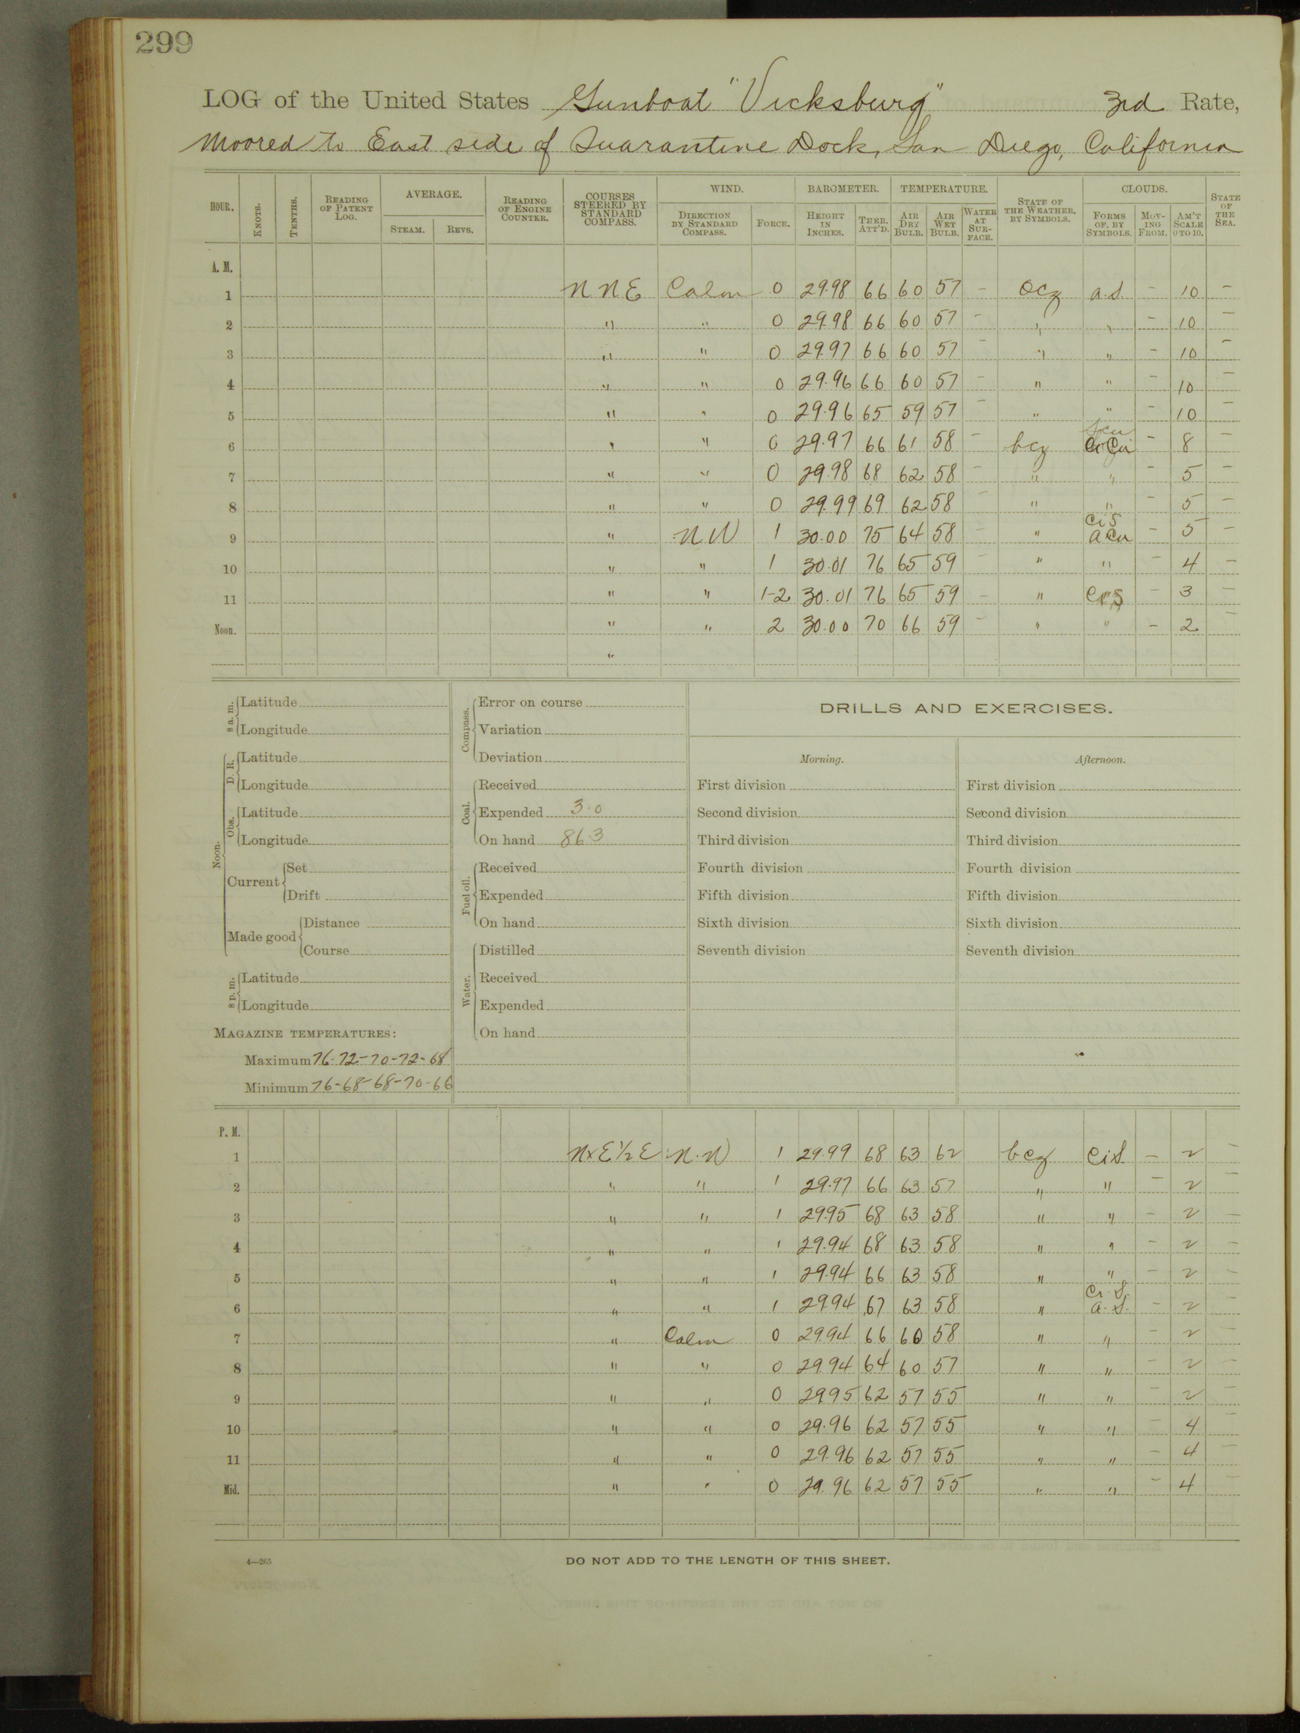 299
LOG of the United States Gunboat "Vicksburg" 3rd Rate,
Moored to East side of Quarantine Dock, San Diego, California
HOUR. KNOTS. TENTHS. READING OF PATENT LOG. AVERAGE. STEAM. REVS. READING OF ENGINE COUNTER. COURSES STEERED BY STANDARD COMPASS. WIND. DIRECTION BY STANDARD COMPASS. FORCE. BAROMETER. HEIGHT IN INCHES. THER. ATT'D. TEMPERATURE. AIR DRY BULB. AIR WET BULB. WATER AT SURFACE. STATE OF THE WEATHER, BY SYMBOLS. CLOUDS. FORMS OF, BY SYMBOLS. MOVING FROM. AM'T SCALE 0 TO 10. STATE OF THE SEA.
A. M.
1 NNE Calm 0 29.98 66 60 57 - ocz a.s. - 10 -
2 " " 0 29.98 66 60 57 - " " - 10 -
3 " " 0 29.97 66 60 57 " " - 10 -
4 " " 0 29.96 66 60 57 - " " - 10 -
5 " " 0 29.96 65 59 57 - " " - 10 -
6 " " 0 29.97 66 61 58 - bcz S.cu Ci Cu - 8 -
7 " " 0 29.98 68 62 58 - " " - 5 -
8 " " 0 29.99 69 62 58 - " " - 5 -
9 " NW 1 30.00 75 64 58 - " Ci S A Cu - 5 -
10 " " 1 30.01 76 65 59 - " " - 4 -
11 " " 1-2 30.01 76 65 59 - " - 3 -
Noon. " " 2 30.00 70 66 59 - " " - 2 -
"
8 a. m. Latitude
Longitude
Noon. D. R. Latitude
Longitude
Obs. Latitude
Longitude
Current Set
Drift
Made good Distance
Course
8 p. m. Latitude
Longitude
MAGAZINE TEMPERATURES:
Maximum 76-72-70-72-68
Minimum 76-68-68-70-66
Compass. Error on course
Variation
Deviation
Coal. Received
Expended 3.0
On hand 863
Fuel oil. Received
Expended
On hand
Water. Distilled
Received
Expended
On hand
DRILLS AND EXERCISES.
Morning. Afternoon.
First division First division
Second division Second division
Third division Third division
Fourth division Fourth division
Fifth division Fifth division
Sixth division Sixth division
Seventh division Seventh division
P. M.
1 NxE½E N.W 1 29.99 68 63 62 bcz Ci S. - 2 -
2 " " 1 29.97 66 63 57 " " - 2 -
3 " " 1 29.95 68 63 58 " " - 2 -
4 " " 1 29.94 68 63 58 " " - 2 -
5 " " 1 29.94 66 63 58 " " - 2 -
6 " " 1 29.94 67 63 58 " Ci. S. A. S. - 2 -
7 " Calm 0 29.94 66 60 58 " " - 2 -
8 " " 0 29.94 64 60 57 " " - 2 -
9 " " 0 29.95 62 57 55 " " - 2 -
10 " " 0 29.96 62 57 55 " " - 4 -
11 " " 0 29.96 62 57 55 " " - 4 -
Mid. " " 0 29.96 62 57 55 " " - 4 -
4—265
DO NOT ADD TO THE LENGTH OF THIS SHEET.